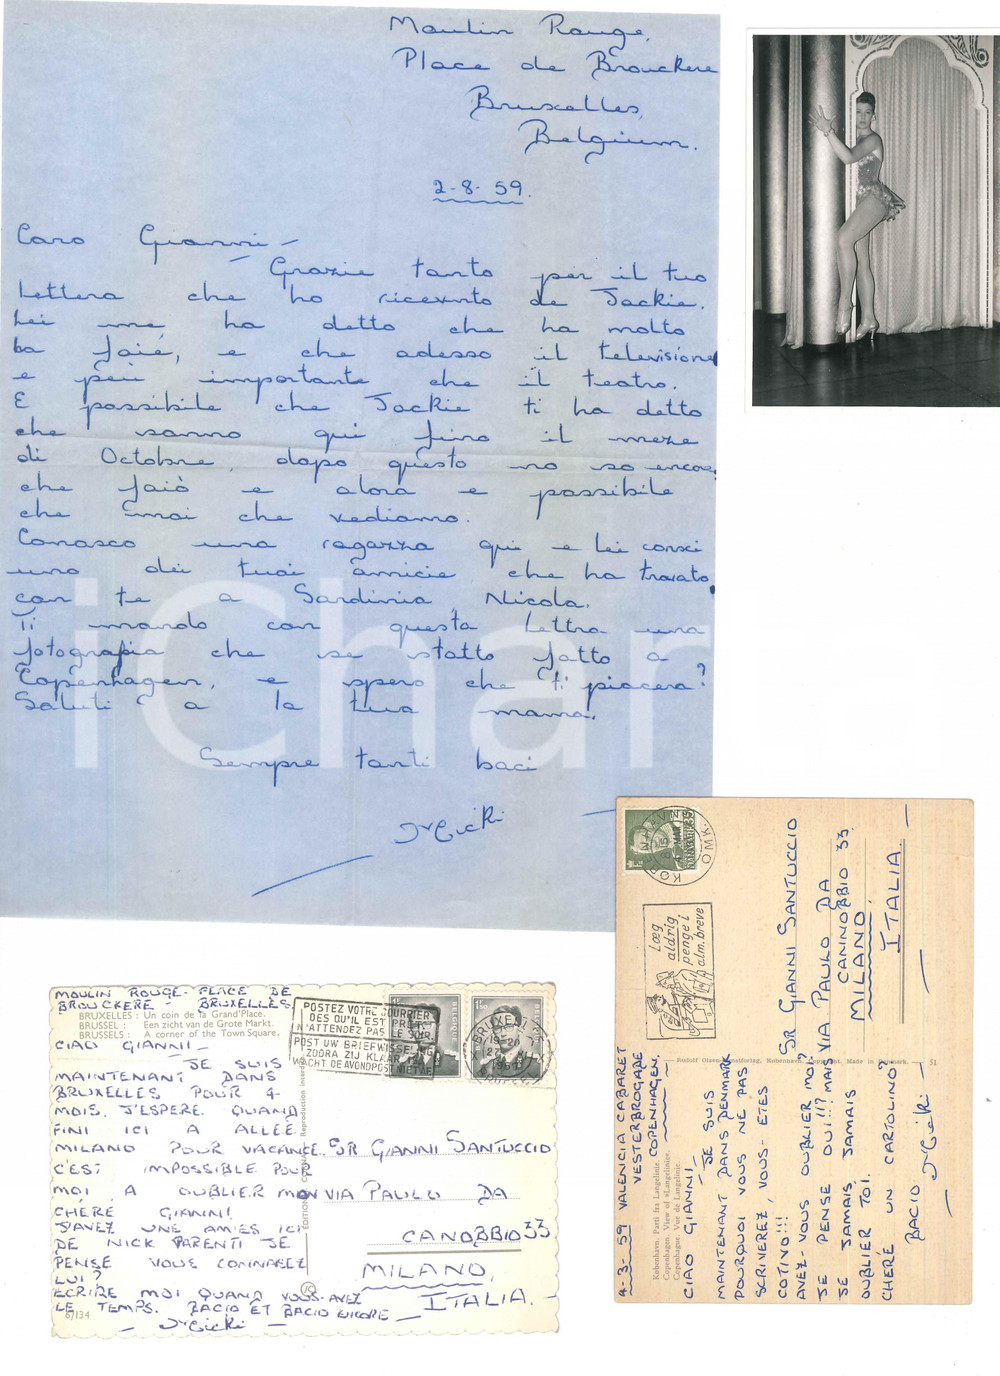 Moulin Rouge,
Place de Brouckere
Bruxelles,
Belgium.
2-8-59.
Caro Gianni -
Grazie tanto per il tuo
Lettera che ho ricevuto de Jackie.
Lei me ha detto che ha molto
da faié, e che adesso il televisione
e peiu importante che il teatro.
E possibile che Jackie ti ha detto
che sanno qui fino il meze
di Octobre, dopo questo no so encore
che faiò e alora e possibile
che vediamo.
Conosco una ragazza qui e lei
uno dei tuoi amicie che ha trovato
con te a Sardinia, Nicola.
Ti mando con questa Lettra una
fotografia che se statto fatto a
Copenhagen, e spero che ti piacera?
Saluti a la tua mama.
Sempre tanti baci
Vicki
iCharta
MOULIN ROUGE- PLACE DE
BROUCKERE - BRUXELLES
BRUXELLES : Un coin de la Grand'Place.
BRUSSEL : Een zicht van de Grote Markt.
BRUSSELS : A corner of the Town Square.
CIAO GIANNI -
JE SUIS
MAINTENANT DANS
BRUXELLES POUR 4
MOIS. J'ESPERE QUAND
FINI ICI A ALLEE
MILANO POUR VACANCE.
C'EST IMPOSSIBLE POUR
MOI A OUBLIER MON
CHÉRÉ GIANNI!
J'AVEZ UNE AMIES ICI
DE NICK PARENTI JE
PENSE VOUS CONNAREZ
LUI?
ECRIRE MOI QUAND VOUS-AVEZ
LE TEMPS. BACIO ET BACIO ENCORE -
Vicki
67134
POSTEZ VOTRE COURRIER
DES QU'IL EST PRET
N'ATTENDEZ PAS LE SOIR.
POST UW BRIEFWISSELING
ZODRA ZIJ KLAAR IS
WACHT DE AVONDPOST NIET AF
BELGIQUE
SR. GIANNI SANTUCCIO
VIA PAULO DA
CANOBBIO 33
MILANO,
ITALIA.
4-3-59 VALENCIA CABARET
VESTERBROGADE
COPENHAGEN.
CIAO GIANNI -
JE SUIS
MAINTENANT DANS DENMARK
POURQUOI VOUS NE PAS
SCRIVEREZ, VOUS- ETES
COTIVO!!!
AVEZ-VOUS OUBLIER MOI?
JE PENSE OUI!!? MAIS
JE JAMAIS JAMAIS
OUBLIER TOI.
CHERÉ UN CARTOLINO?
BACIO Vicki
København. Parti fra Langelinie.
Copenhagen. View of »Langelinie«.
Copenhague. Vue de Langelinie.
Rudolf Olsens Kunstforlag, København. Made in Denmark. 31
Læg
aldrig
penge i
alm. breve
SR GIANNI SANTUCCIO
VIA PAULO DA
CANINOBBIO 33.
MILANO.
ITALIA.